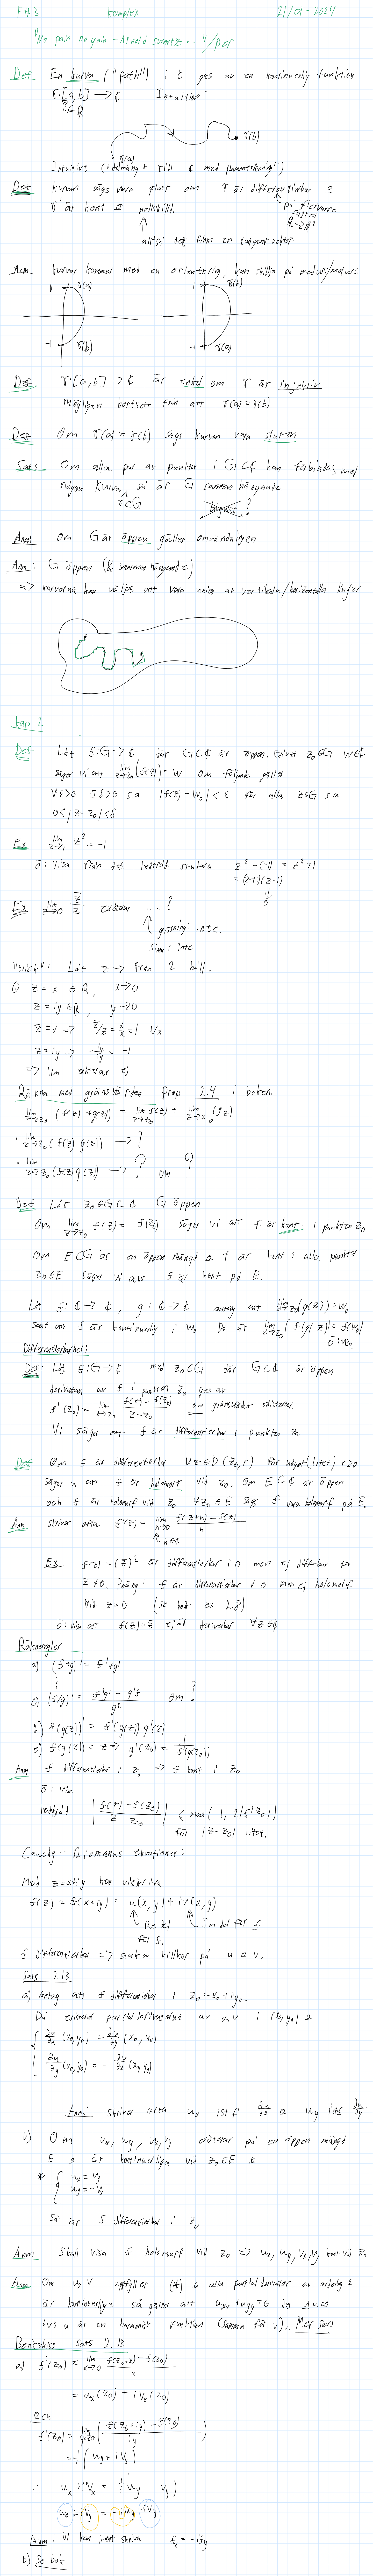 F#3 Komplex 21/01-2024
"No pain no gain - Arnold
Def En kurva ("path") i ℂ ges av en kontinuerlig funktion
γ: [a,b] → ℂ Intuition:
⊂ ℝ
γ(a) γ(b)
Intuitive ( till ℂ med parametrisering")
Def kurvan sägs vara glatt om γ är differentierbar &
γ' är kont & nollskild.
på flervarre
sättet
ℝ→ℝ²
alltså det finns en tangent vektor
Anm kurvor kommer med en orientering, kan skilja på medurs/moturs
1 γ(a) 1 γ(b)
-1 γ(b) -1 γ(a)
Def γ: [a,b] → ℂ är enkel om γ är injektiv
Möjligen bortsett från att γ(a) = γ(b)
Def Om γ(a) = γ(b) sägs kurvan vara sluten
Sats Om alla par av punkter i G⊂ℂ kan förbindas med
någon kurva, så är G sammanhängande.
γ⊂G
?
Anm: om G är öppen gäller omvändningen
Anm: G öppen (& sammanhängande)
=> kurvorna kan väljas att vara union av vertikala/horizontella linjer
kap 2
Def Låt f: G → ℂ där G⊂ℂ är öppen. Givet z₀∈G w∈ℂ
säger vi att lim z→z₀ (f(z)) = w om följande gäller
∀ε>0 ∃δ>0 s.a |f(z) - w₀| < ε för alla z∈G s.a
0<|z-z₀|<δ
Ex lim z→i z² = -1
ö: Visa från def. ledtråd studera z² - (-1) = z² + 1
= (z+i)(z-i)
↓
0
Ex lim z→0 z̄/z existerar ...?
gissning: inte.
Svar: inte
"trick": Låt z → från 2 håll.
① z = x ∈ ℝ, x→0
z = iy ∈ ℝ, y→0
z = x => z̄/z = x/x = 1 ∀x
z = iy => -iy/iy = -1
=> lim existerar ej
Räkna med gränsvärden Prop 2.4 i boken.
lim z→z₀ (f(z) + g(z)) = lim z→z₀ f(z) + lim z→z₀ (g z)
· lim z→z₀ (f(z) g(z)) → ?
· lim z→z₀ (f(z) g(z)) → ? om ?
Def Låt z₀∈G⊂ℂ G öppen
Om lim z→z₀ f(z) = f(z₀) säger vi att f är kont i punkten z₀
Om E⊂G är en öppen mängd & f är kont i alla punkter
z₀∈E säger vi att f är kont på E.
Låt f: ℂ→ℂ, g: ℂ→ℂ antag att lim z→z₀ (g(z)) = w₀
samt att f är kontinuerlig i w₀ Då är lim z→z₀ (f(g(z)) = f(w₀)
ö: visa
Differentierbarhet:
Def: Låt f: G→ℂ med z₀∈G där G⊂ℂ är öppen
derivatan av f i punkten z₀ ges av
f'(z₀) = lim z→z₀ f(z) - f(z₀) / z - z₀ om gränsvärdet existerar.
Vi säger att f är differentierbar i punkten z₀
Def Om f är differentierbar ∀z∈D(z₀,r) för något (litet) r>0
säger vi att f är holomorf vid z₀. Om E⊂ℂ är öppen
och f är holomorf vid z₀ ∀z₀∈E sägs f vara holomorf på E.
Anm skriver ofta f'(z) = lim h→0 f(z+h) - f(z) / h
h∈ℂ
Ex f(z) = (z̄)² är differentierbar i 0 men ej diffbar för
z≠0. Poäng: f är differentierbar i 0 men ej holomorf
vid z=0 (se bok ex 2.8)
ö: visa att f(z) = z̄ ej är deriverbar ∀z∈ℂ
Räkneregler
a) (f+g)' = f' + g'
⋮
c) (f/g)' = f'g - g'f / g² om ?
d) f(g(z))' = f'(g(z)) g'(z)
e) f(g(z)) = z => g'(z₀) = 1 / f'(g(z₀))
Anm f differentierbar i z₀ => f kont i z₀
ö. visa
ledtråd |f(z) - f(z₀) / z - z₀| ≤ max(1, 2|f'(z₀)|)
för |z-z₀| litet.
Cauchy - Riemanns ekvationer:
Med z = x+iy kan vi skriva
f(z) = f(x+iy) = u(x,y) + iv(x,y)
Re del för f. Im del för f
f differentierbar => starka villkor på u & v.
Sats 2.13
a) Antag att f differentierbar i z₀ = x₀ + iy₀.
Då existerar partialderivator av u,v i (x₀,y₀) &
∂u/∂x (x₀,y₀) = ∂v/∂y (x₀,y₀)
∂u/∂y (x₀,y₀) = - ∂v/∂x (x₀,y₀)
Anm: skriver ofta uₓ istf ∂u/∂x & u_y istf ∂u/∂y
b) Om uₓ, u_y, vₓ, v_y existerar på en öppen mängd
E & är kontinuerliga vid z₀∈E &
* { uₓ = v_y
u_y = -vₓ
Så är f differentierbar i z₀
Anm Skall visa f holomorf vid z₀ => uₓ, u_y, vₓ, v_y kont vid z₀
Anm Om u,v uppfyller (*) & alla partialderivator av ordning 2
är kontinuerliga så gäller att uₓₓ + u_yy = 0 dvs Δu=0
dvs u är en harmonisk funktion (samma för v).. Mer sen
Bevisskiss sats 2.13
a) f'(z₀) = lim x→0 f(z₀+x) - f(z₀) / x
= uₓ(z₀) + i vₓ(z₀)
Och
f'(z₀) = lim y→0 (f(z₀+iy) - f(z₀) / iy)
= 1/i (u_y + i v_y)
∴ uₓ + i vₓ = 1/i u_y v_y)
uₓ + i vₓ = -i u_y + v_y
Anm: Vi kan kort skriva fₓ = -i f_y
b) Se bok